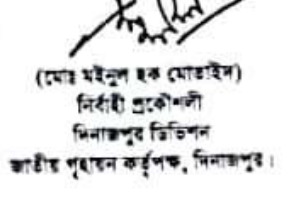 (মোঃ মইনুল হক মোতাইদ)
নির্বাহী প্রকৌশলী
দিনাজপুর ডিভিশন
জাতীয় গৃহায়ন কর্তৃপক্ষ, দিনাজপুর।